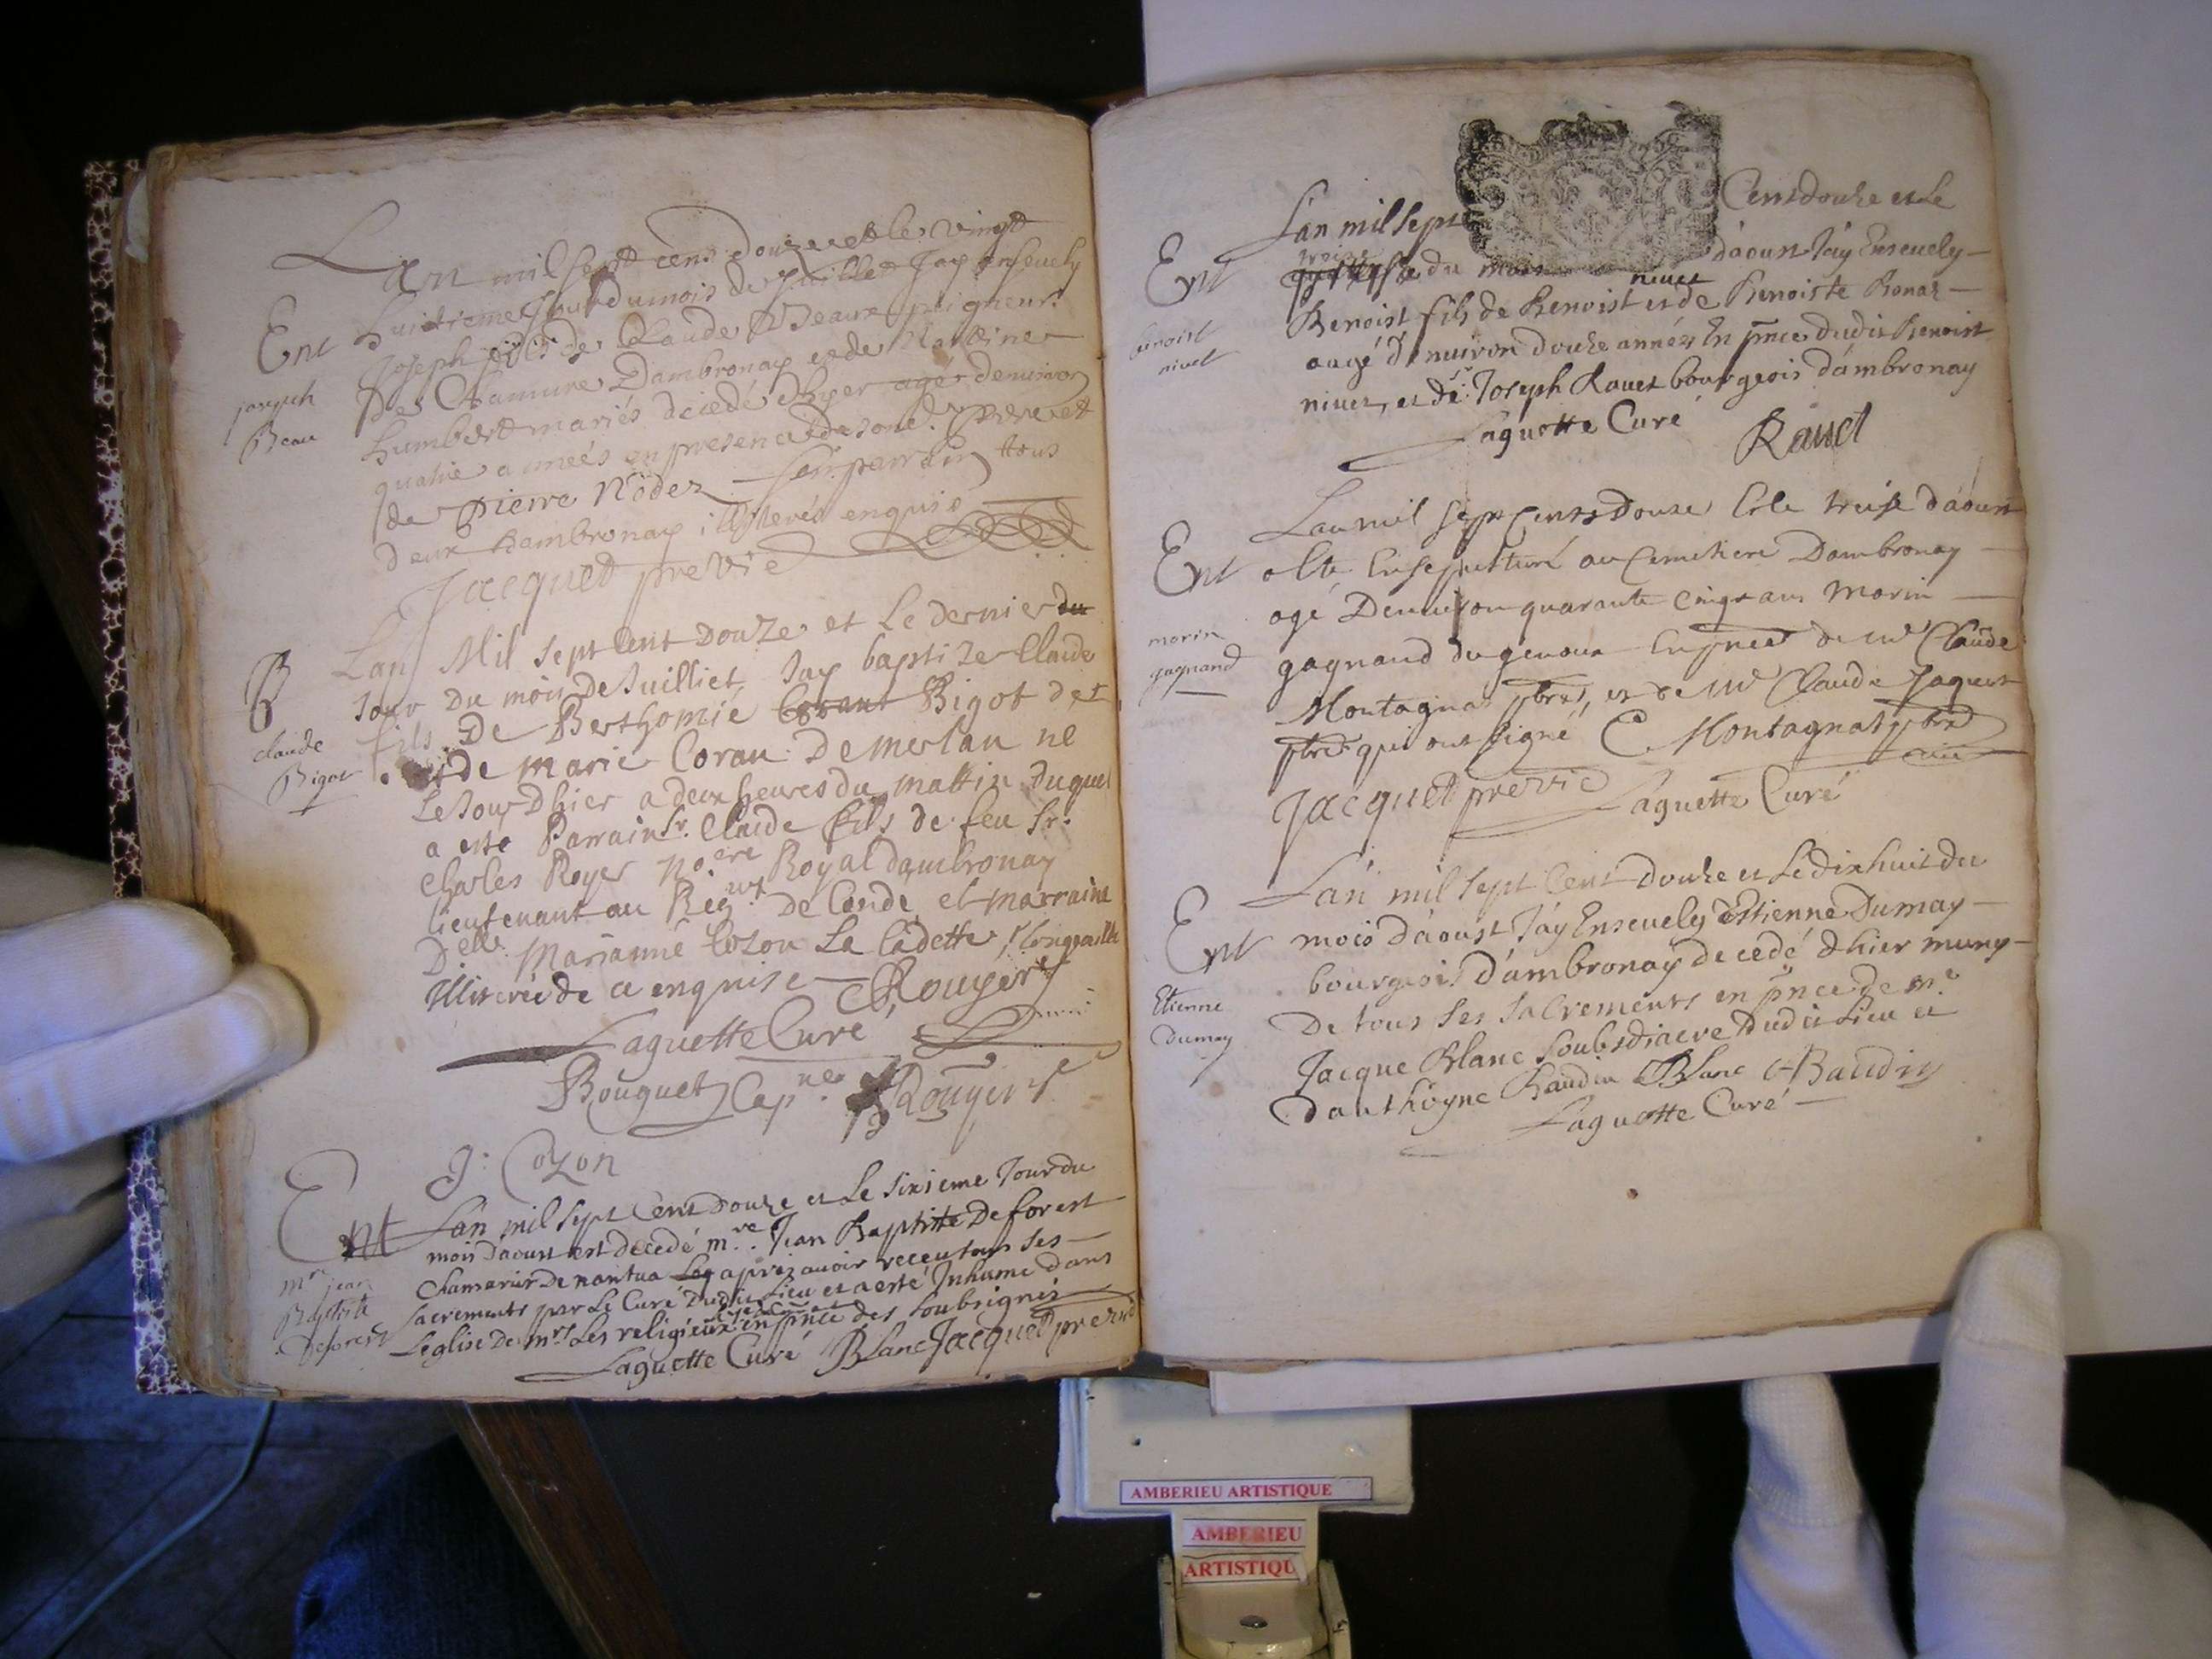 Lan mil sept cens douze et le vingt
Ent huitieme Jour du mois de Juillet Jay ensevely
Joseph fils de Claude Beaux peigneur
joseph Beau
de Chamure Dambronay et de
humbert mariés decedé dhyer agé denviron
quatre années en presence de son d. pere et
de Pierre Nodet son parrain tous
deux dambronay illiterés enquis
Jacquet previc
B Lan Mil Sept Cent Douze et Le dernier du
Jour Du mois De Juilliet Jay baptize Claude
claude Bigot
fils De Berthomie Corant Bigot et
et de marie Coran De merlan ne
Le Jour Dhier a deux heures du mattin Duquel
a esté Parrain Sr. Claude fils de feu Sr.
Charles Roger Noere Royal dambronay
lieutenant au Regnt De Condé et marraine
Delle Marianne Cozon La Cadette
Illiterée de ce enquise CRougert
Laguette Curé
Bouguet Capne Rougert
J. Cozon
Ent Lan mil sept Cent Douze et Le sixieme Jour du
mois daoust est decedé mre Jean Baptiste Deforest
mre jean Baptiste Deforest
Chamarier De nantua apres avoir receu tous ses
sacrements par Le Curé Dudit Lieu et a esté Inhumé dans
Leglise De mrs Les religieux en pnce des soubsignés
Laguette Curé Blanc Jacquet previc
Lan mil sept Cent douze et Le
Ent trois du mois d'aoust Jay Ensevely
nivet
benoist nivet
Benoist fils de Benoist et de Benoiste Bonaz
aagé d'environ douze années En pnce dudit Benoist
nivet, et de sr Joseph Ravet bourgeois d'ambronay
Laguette Curé Ravet
Lan mil sept Cents Douze & le treise d'aoust
Ent a esté Ensepulturé au Cemetiere Dambronay
agé Denviron quarante Cinq ans Morin
morin gagnand
gagnand du genoux En pnce de Mre Claude
Montagnat pbre, et de Mre Claude Jaquet
pbre qui ont signé C Montagnat pbre
Jacquet previc Laguette Curé
Lan mil sept Cent Douze et Le dix huit du
Ent mois d'aoust Jay Ensevely Estienne Dumay
bourgeois d'ambronay decedé d'hier muny
Etienne Dumay
De tous ses sacrements en pnce de mr
Jacque Blanc soubsdiacre Dudit Lieu et
d'anthoyne Baudin Blanc ABaudin
Laguette Curé
AMBERIEU ARTISTIQUE
AMBERIEU
ARTISTIQU